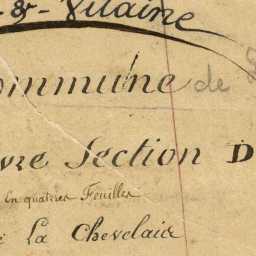 -&-Vilaine
ommune de
vre Section D
En quatres Feuilles
La Chevelais